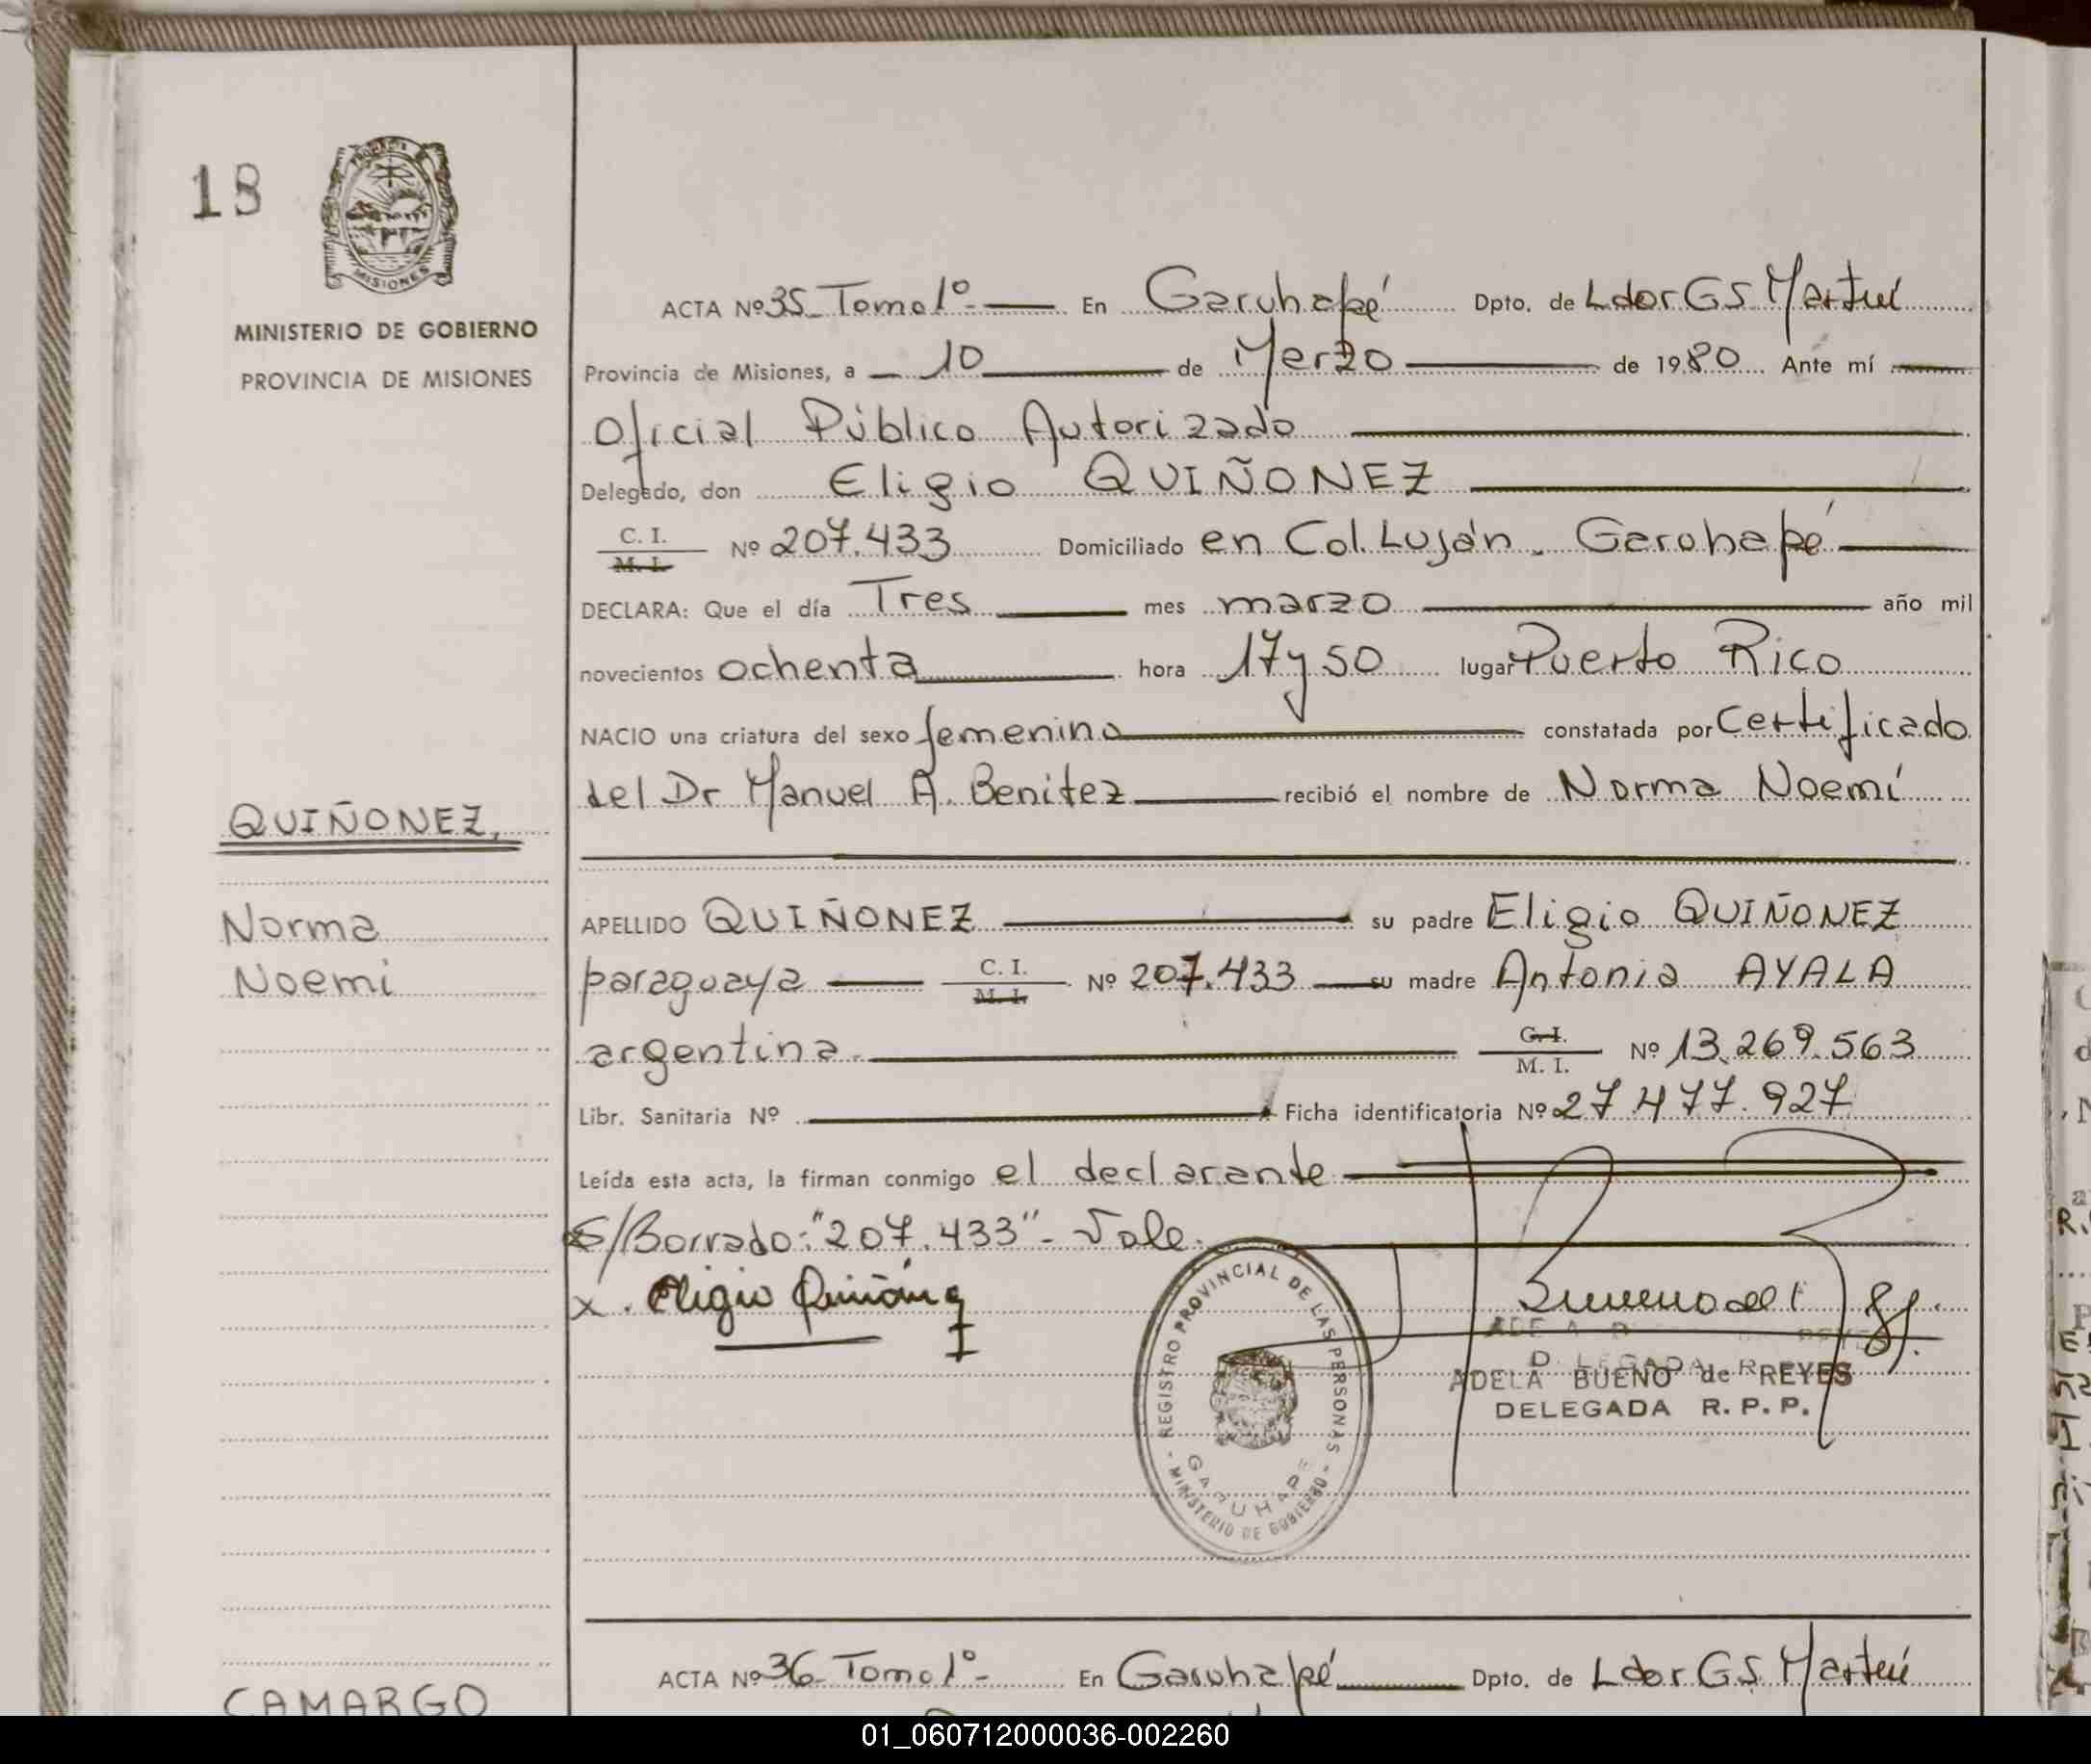 18
PROVINCIA
MISIONES
MINISTERIO DE GOBIERNO
PROVINCIA DE MISIONES
QUIÑONEZ,
Norma
Noemi
ACTA Nº 35_ Tomo 1º - En Garuhapé Dpto. de Ldor G S Martín
Provincia de Misiones, a 10 de Marzo de 1980 Ante mí
Oficial Público Autorizado
Delegado, don Eligio QUIÑONEZ
C. I.
M. I. Nº 207.433 Domiciliado en Col. Luján. Garuhapé
DECLARA: Que el día Tres mes marzo año mil
novecientos ochenta hora 17 y 50 lugar Puerto Rico
NACIO una criatura del sexo femenino constatada por Certificado
del Dr Manuel A. Benitez recibió el nombre de Norma Noemí
APELLIDO QUIÑONEZ su padre Eligio QUIÑONEZ
paraguaya C. I. M. I. Nº 207.433 su madre Antonia AYALA
argentina. C. I. M. I. Nº 13.269.563
Libr. Sanitaria Nº Ficha identificatoria Nº 27.477.927
Leída esta acta, la firman conmigo el declarante
S/Borrado: "207.433" - Vale.
x. Eligio Quiñonez
REGISTRO PROVINCIAL DE LAS PERSONAS
GARUHAPE
- MINISTERIO DE GOBIERNO -
ADELA BUENO de REYES
DELEGADA R. P. P.
ACTA Nº 36_ Tomo 1º - En Garuhapé Dpto. de Ldor G S Martín
CAMARGO
01_060712000036-002260